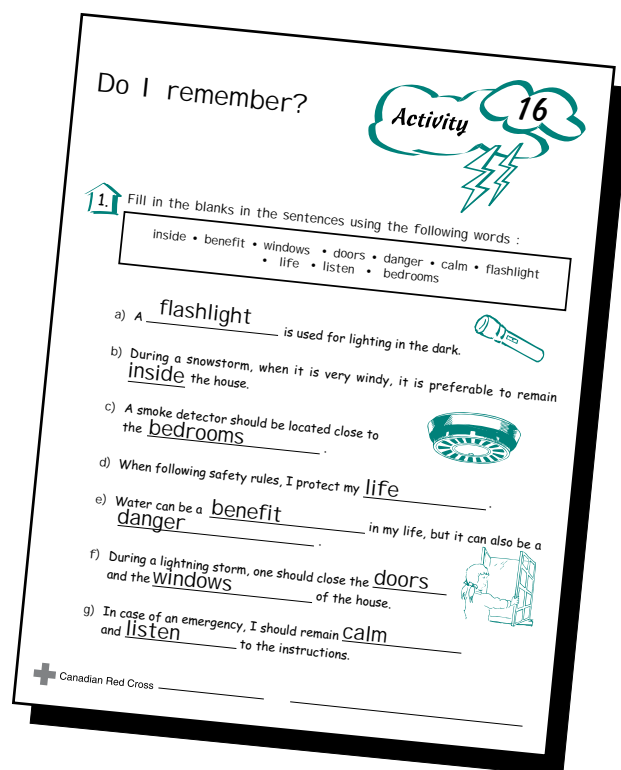 Do I remember?
Activity 16
1. Fill in the blanks in the sentences using the following words :
inside • benefit • windows • doors • danger • calm • flashlight
• life • listen • bedrooms
a) A flashlight is used for lighting in the dark.
b) During a snowstorm, when it is very windy, it is preferable to remain
inside the house.
c) A smoke detector should be located close to
the bedrooms .
d) When following safety rules, I protect my life .
e) Water can be a benefit in my life, but it can also be a
danger .
f) During a lightning storm, one should close the doors
and the windows of the house.
g) In case of an emergency, I should remain calm
and listen to the instructions.
Canadian Red Cross